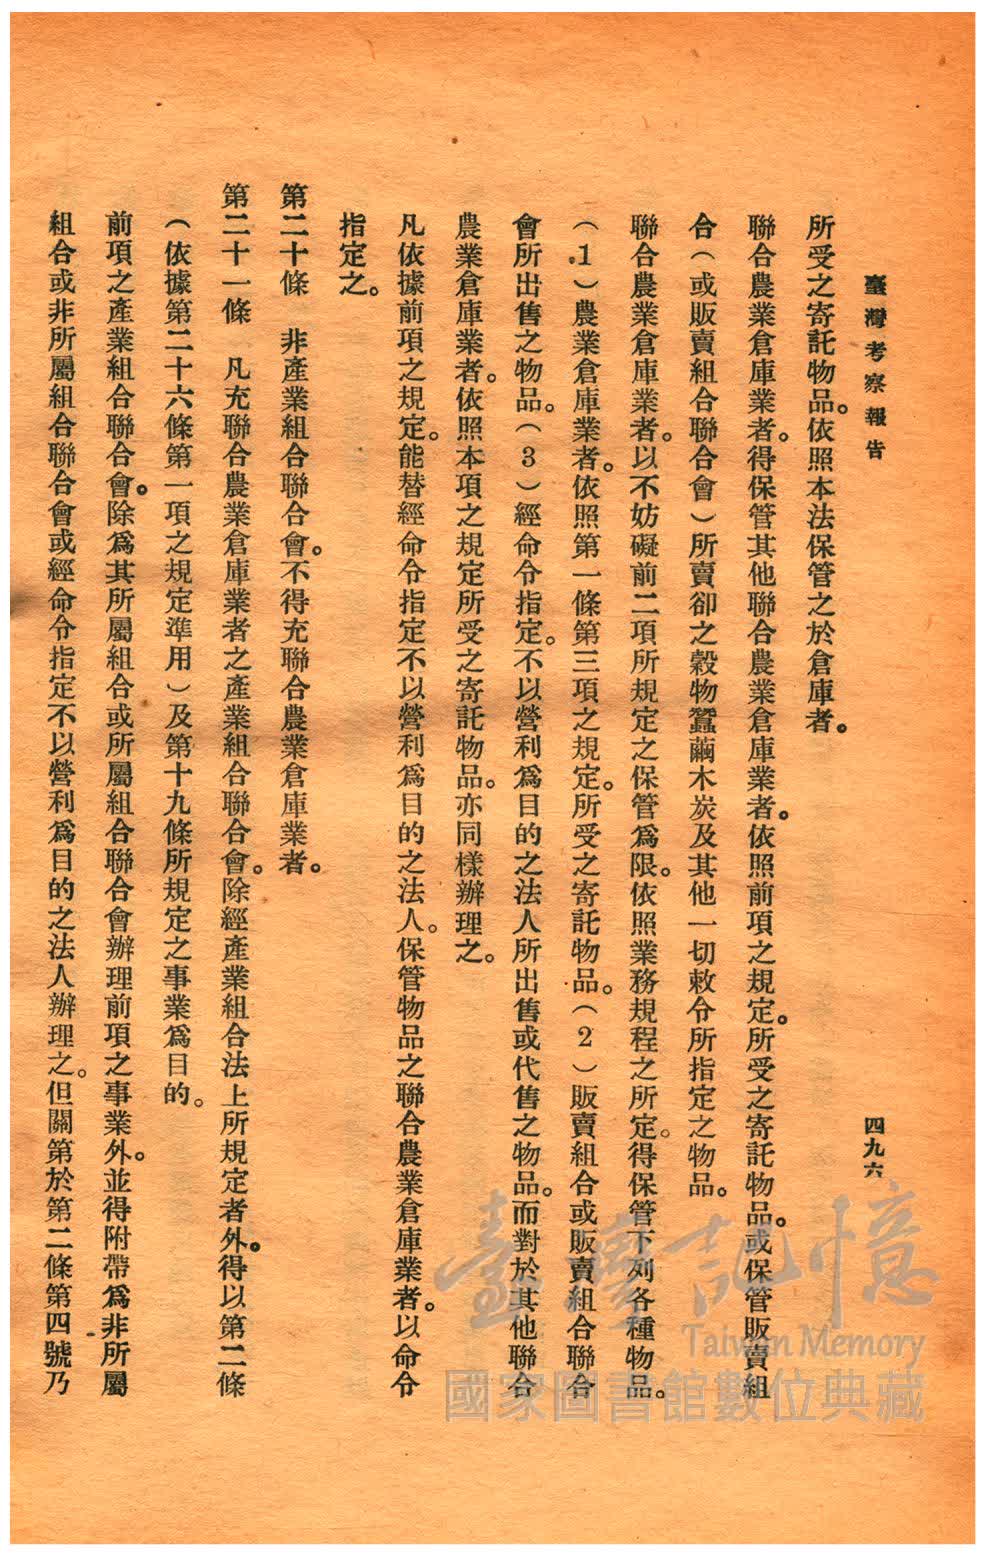 臺灣考察報告
四九六
所受之寄託物品。依照本法保管之於倉庫者。
聯合農業倉庫業者。得保管其他聯合農業倉庫業者。依照前項之規定。所受之寄託物品。或保管販賣組
合(或販賣組合聯合會)所賣卻之穀物蠶繭木炭及其他一切敕令所指定之物品。
聯合農業倉庫業者。以不妨礙前二項所規定之保管爲限。依照業務規程之所定。得保管下列各種物品。
(1)農業倉庫業者。依照第一條第三項之規定。所受之寄託物品。(2)販賣組合或販賣組合聯合
會所出售之物品。(3)經命令指定。不以營利爲目的之法人所出售或代售之物品。而對於其他聯合
農業倉庫業者。依照本項之規定所受之寄託物品。亦同樣辦理之。
凡依據前項之規定。能替經命令指定不以營利爲目的之法人。保管物品之聯合農業倉庫業者。以命令
指定之。
第二十條 非產業組合聯合會。不得充聯合農業倉庫業者。
第二十一條 凡充聯合農業倉庫業者之產業組合聯合會。除經產業組合法上所規定者外。得以第二條
(依據第二十六條第一項之規定準用)及第十九條所規定之事業爲目的。
前項之產業組合聯合會。除爲其所屬組合或所屬組合聯合會辦理前項之事業外。並得附帶爲非所屬
組合或非所屬組合聯合會或經命令指定不以營利爲目的之法人辦理之。但關第於第二條第四號乃
臺灣記憶
Taiwan Memory
國家圖書館數位典藏